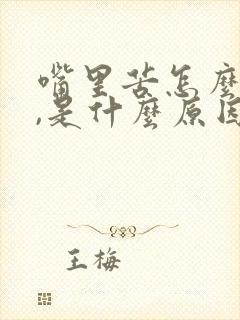 嘴里苦怎麽
,是什麽原因
王梅